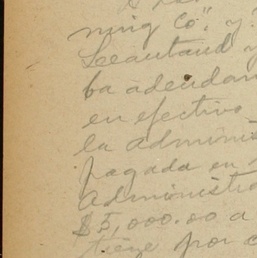 ning Co", y
Leautaud y
ba adeudan
en efectivo
la adminis
pagada en
Administra
$5,000.00 a
tiene por c